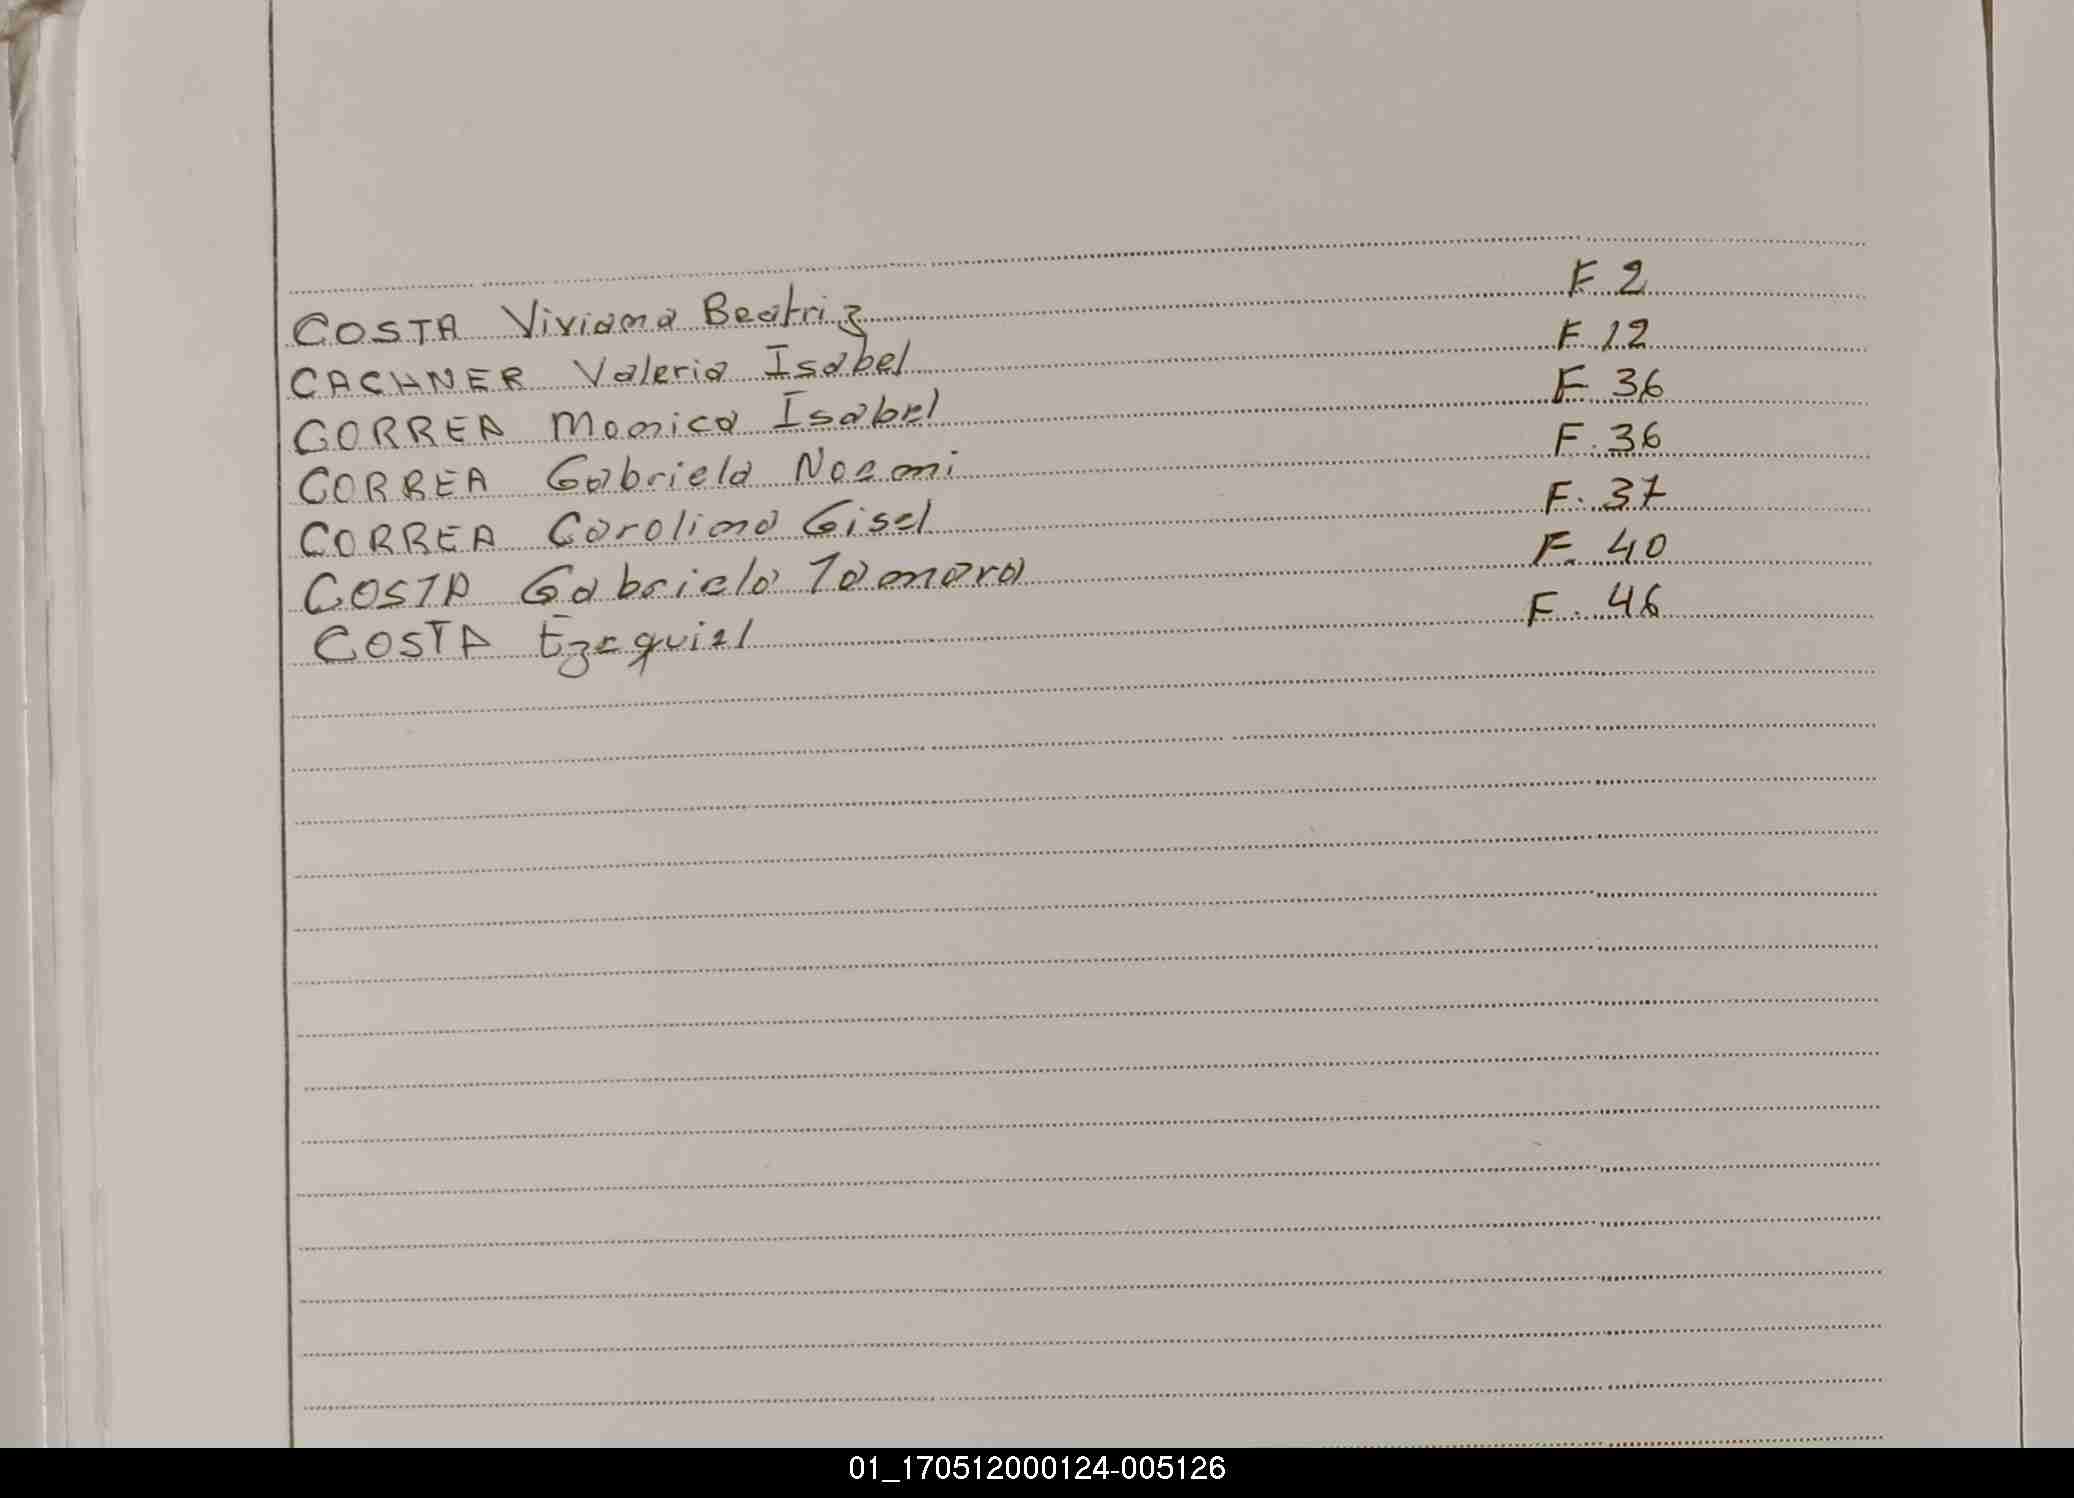 COSTA Viviana Beatriz F 2
CACHNER Valeria Isabel F 12
CORREA Monica Isabel F 36
CORREA Gabriela Noemi F. 36
CORREA Carolina Gisel F. 37
COSTA Gabriela Tamara F. 40
COSTA Ezequiel F. 46
01_170512000124-005126